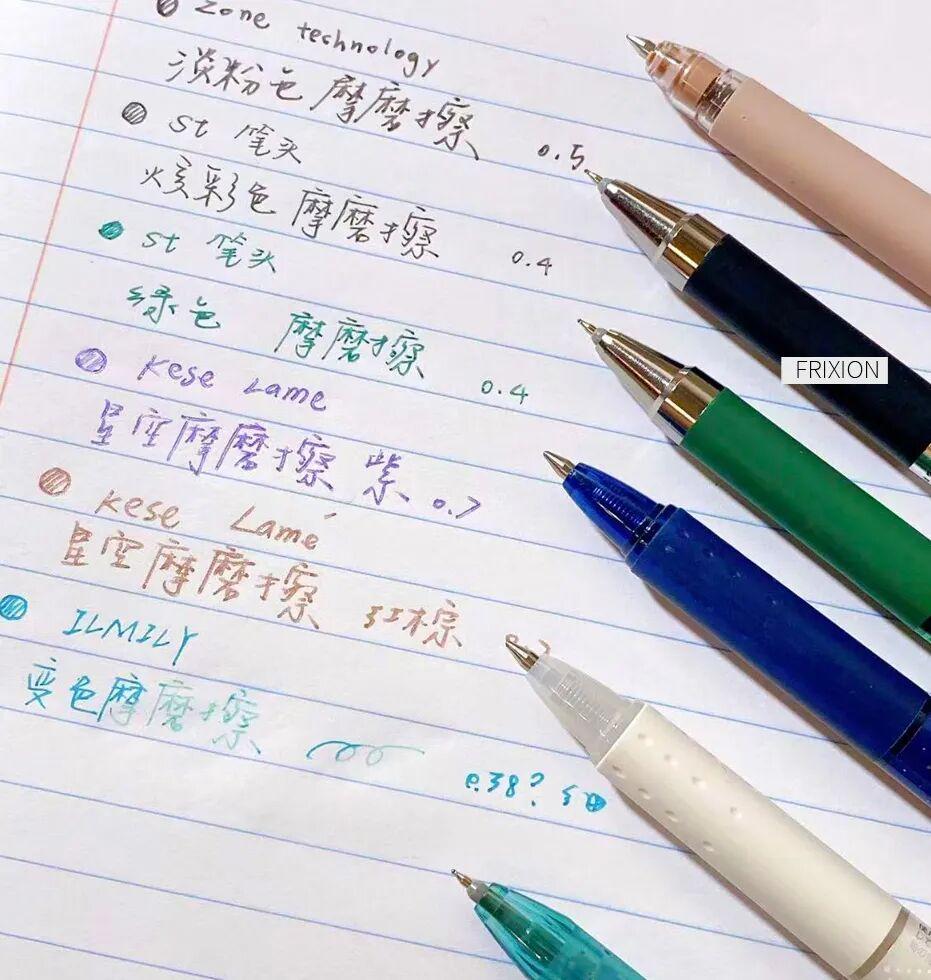 Zone technology
淡粉色 摩磨擦 0.5
St 笔头
炫彩色 摩磨擦 0.4
St 笔头
绿色 摩磨擦 0.4
Kese Lame
星空摩磨擦 紫 0.7
Kese Lamé
星空摩磨擦 红棕 0.7
ILMILY
变色摩磨擦
0.38? 细
FRIXION